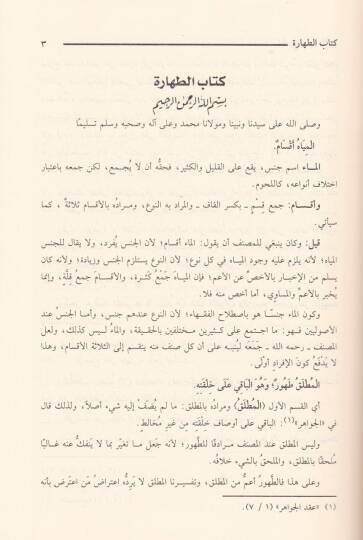 كتاب الطهارة ٣
كتاب الطهارة
بسم الله الرحمن الرحيم
وصلى الله على سيدنا ونبينا ومولانا محمد وعلى آله وصحبه وسلم تسليمًا
المِيَاهُ أَقْسَامٌ:
الماء اسم جنس، يقع على القليل والكثير، فحقُّه أن لا يُجـمع، لكن جمعه باعتبار
اختلاف أنواعه، كاللحوم.
وأقسام: جمع قِسْمٍ ـ بكسر القاف ـ والمراد به النوع، ومرادُه بالأقسام ثلاثةٌ، كما
سيأتي.
قيل: وكان ينبغي للمصنف أن يقول: الماء أقسام؛ لأن الجنس يُفرد، ولا يقال للجنس
المياه؛ لأنه يلزم عليه وجود المياه في كل نوع؛ لأن النوع يستلزم الجنس وزيادة؛ ولأنه كان
يسلم من الإخبار بالأخصِّ عن الأعم؛ فإن المياهَ جَمعُ كَثرة، والأقسامَ جمعُ قِلَّةٍ، وإنما
يُخبر بالأعمِّ والمساوي، أما أخص منه فلا.
وكون الماء جنسًا هو باصطلاح الفقهاء؛ لأن النوع عندهم جنس، وأما الجنس عند
الأصوليين فـهو: ما اجتمع على كـثيرين مختلفين بالحقيقة، والماءُ ليس كذلك، ولعل
المصنف ـ رحمه الله ـ جَمَعَه ليُنبه على أن كل صنف منه ينقسم إلى الثلاثة الأقسام، وهذا
لا يَدفَعُ كونَ الإفرادِ أَوْلَى.
المُطْلَقُ طَهُورٌ؛ وَهُوَ البَاقِي عَلَى خِلْقَتِهِ.
أي القسم الأول (المُطْلَقُ) ومرادُه بالمطلق: ما لم يُضَفْ إليه شيء أصلاً، ولذلك قال
في «الجواهر»(١): الباقي على أوصافِ خِلقَتِه من غيرِ مُخالطٍ.
وليس المطلق عند المصنف مرادفًا للطَّهور؛ لأنه جَعل ما تغيَّر بما لا يَنفكُّ عنه غالبًا
مُلحَقًا بالمطلق، والملحقُ بالشيء خلافُه.
وعلى هذا فالطَّهورُ أعمُّ من المطلق، وتفسيرنا المطلق لا يَرِدُّه اعتراضُ مَن اعترض بأنه
(١) «عقد الجواهر» (١ / ٧).